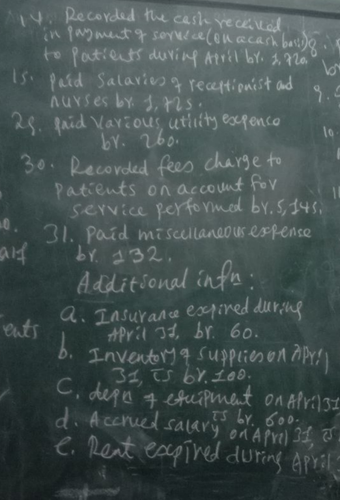 14. Recorded the cash received
in payment of service (on a cash basis)
to patients during April br. 1,720.
15. Paid Salaries of receptionist ad
nurses br. 1,725.
25. paid various utility expence
br. 260.
30. Recorded fees charge to
patients on account for
service performed br. 5,145.
31. paid miscellaneous expense
br. 132.
Additional infn:
a. Insurance expired during
ents April 31, br. 60.
b. Inventory of supplies on April
31, is br. 100.
C. depn of equipment on April 31
is br. 600.
d. Accrued salary on April 31, is
e. Rent expired during April